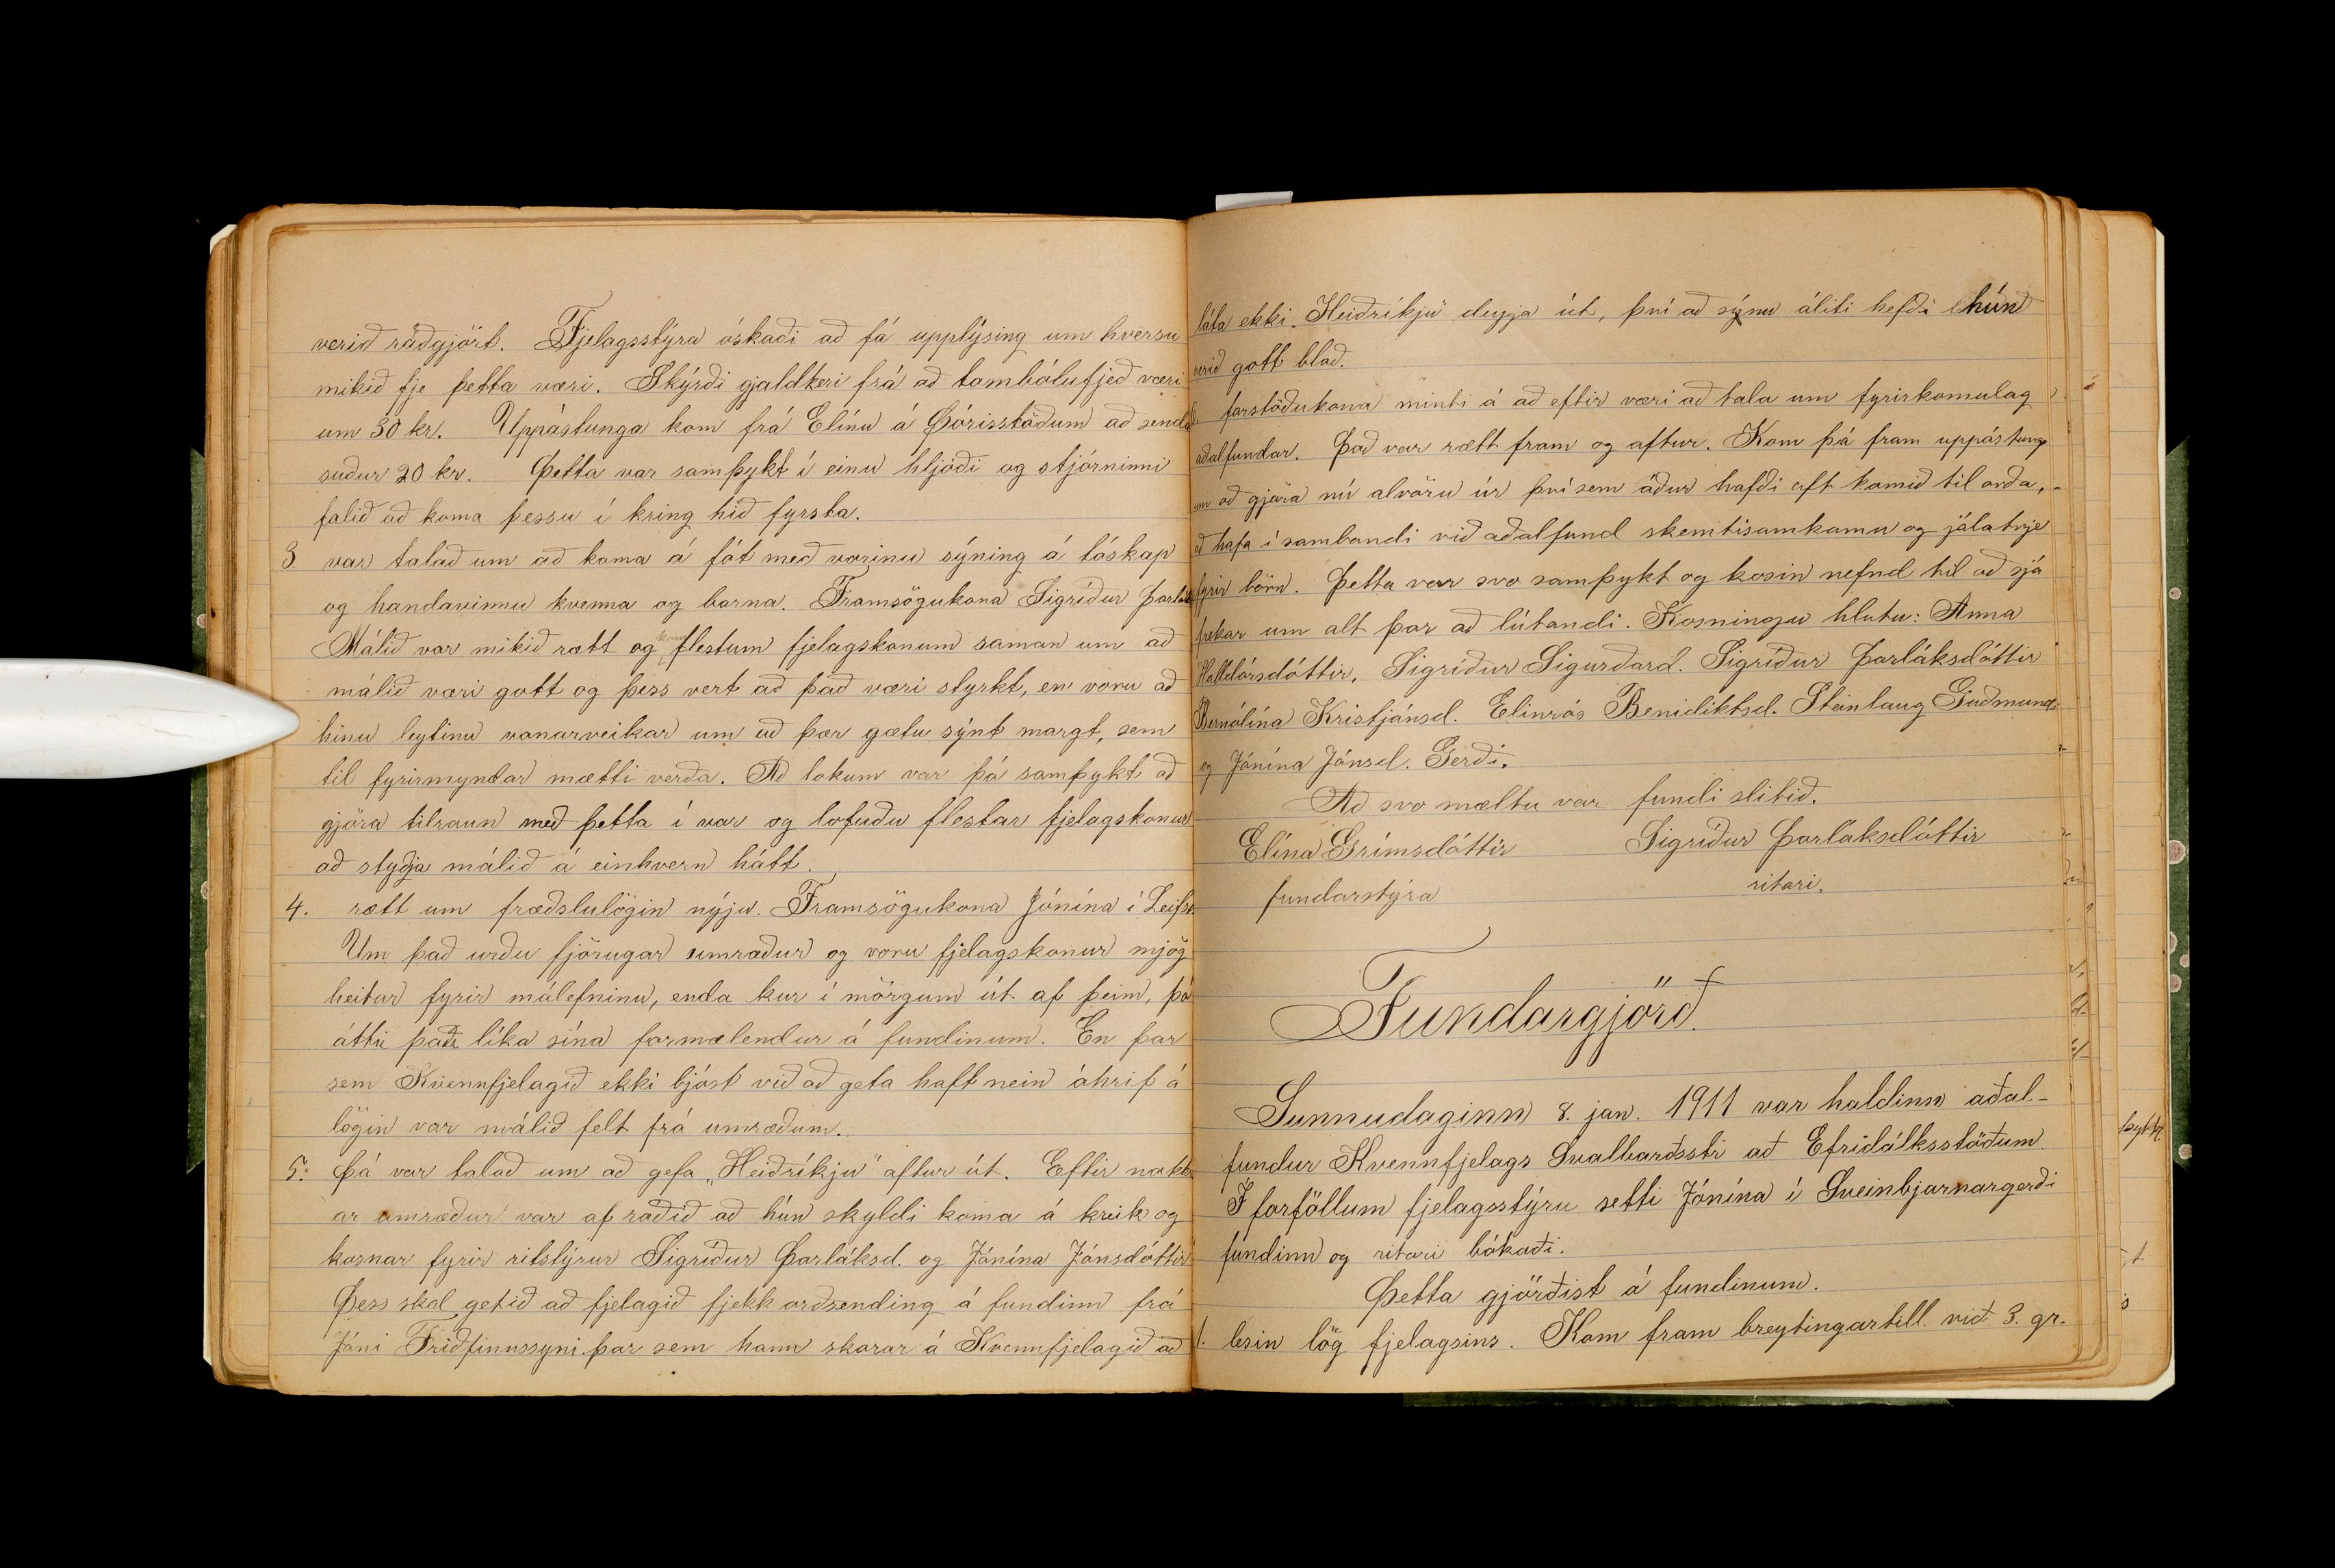 verið ráðgjört. Fjelagsstýra óskaði að fá upplýsing um hversu
mikið fje þetta væri. Skýrði gjaldkeri frá að tombólufjeð væri
um 30 kr. Uppástunga kom frá Elínu á Þórisstöðum að senda
suður 20 kr. Þetta var samþykt í einu hljóði og stjórninni
falið að koma þessu í kring hið fyrsta.
3. var talað um að koma á fót með vorinu sýning á tóskap
og handavinnu kvenna og barna. Framsögukona Sigríður Þorláks
Málið var mikið rætt og kom flestum fjelagskonum saman um að
málið væri gott og þess vert að það væri styrkt, en voru að
hinu leytinu vonarveikar um að þær gætu sýnt margt, sem
til fyrirmyndar mætti verða. Að lokum var þó samþykt að
gjöra tilraun með þetta í vor og lofuðu flestar fjelagskonur
að styðja málið á einhvern hátt.
4. rætt um fræðslulögin nýju. Framsögukona Jónína í Leifsh
Um það urðu fjörugar umræður og voru fjelagskonur mjög
heitar fyrir málefninu, enda kur í mörgum út af þeim, þó
átti það líka sína formælendur á fundinum. En þar
sem Kvennfjelagið ekki bjóst við að geta haft nein áhrif á
lögin var málið felt frá umræðum.
5. Þá var talað um að gefa „Heiðríkju" aftur út. Eftir nokkr
ar umræður var af ráðið að hún skyldi koma á kreik og
kosnar fyrir ritstýrur Sigríður Þorláksd. og Jónína Jónsdóttir
Þess skal getið að fjelagið fjekk orðsending á fundinn frá
Jóni Friðfinnssyni þar sem hann skorar á Kvennfjelagið að
láta ekki Heiðríkju deyja út, því að sýnu áliti hefði hún
verið gott blað.
forstöðukona minti á að eftir væri að tala um fyrirkomulag
aðalfundar. Það var rætt fram og aftur. Kom þá fram uppástunga
um að gjöra nú alvöru úr því sem áður hafði oft komið til orða,
að hafa í sambandi við aðalfund skemtisamkomu og jólatrje
fyrir börn. Þetta var svo samþykt og kosin nefnd til að sjá
frekar um alt þar að lútandi. Kosningu hlutu: Anna
Halldórsdóttir, Sigríður Sigurðard. Sigríður Þorláksdóttir
Bernólína Kristjánsd. Elinrós Benidiktsd. Steinlaug Guðmunds
og Jónína Jónsd. Gerði.
Að svo mæltu var fundi slitið.
Elína Grímsdóttir Sigríður Þorláksdóttir
fundarstýra ritari.
Fundargjörð.
Sunnudaginn 8. jan. 1911 var haldinn aðal-
fundur Kvennfjelags Svalbarðsstr að Efridálksstöðum
Í forföllum fjelagsstýru setti Jónína í Sveinbjarnargerði
fundinn og ritari bókaði.
Þetta gjörðist á fundinum.
1. lesin lög fjelagsins. Kom fram breytingartill. við 3. gr.